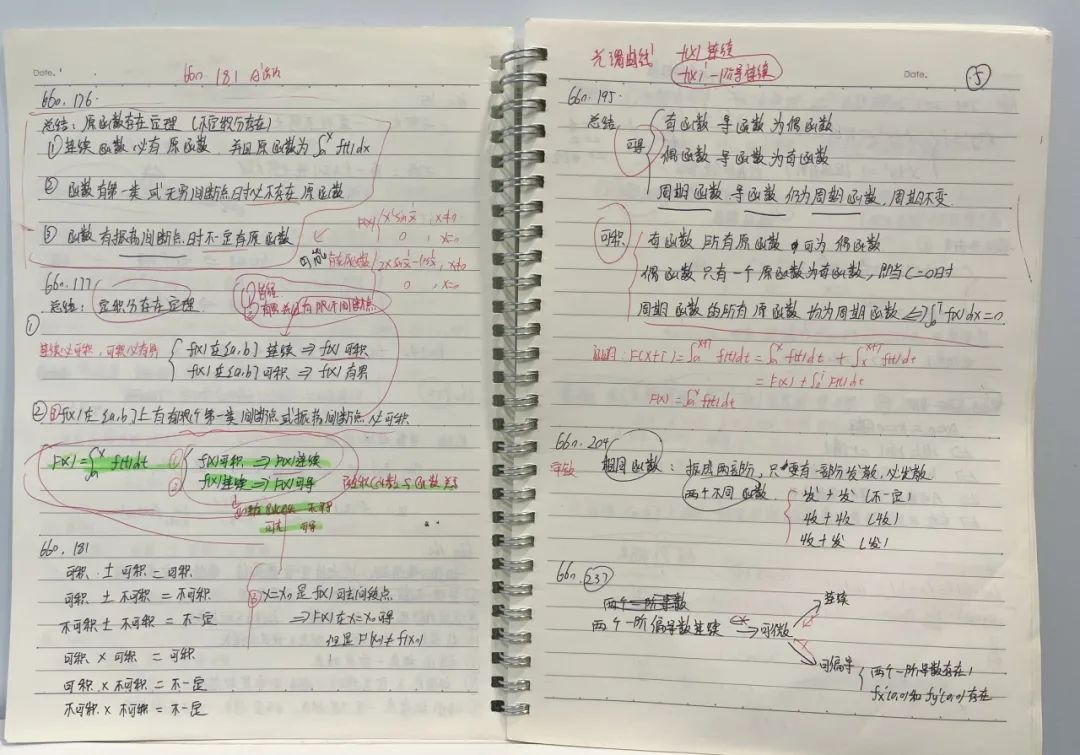 Date.
660. 181
660. 176.
总结：原函数存在定理（不定积分存在）
① 连续函数必有原函数，并且原函数为∫ₐˣ f(t)dx
② 函数有第一类或无穷间断点时必不存在原函数
③ 函数有振荡间断点时不一定有原函数
F(x) { x²sin 1/x , x≠0
0 , x=0
可能有原函数 { 2x sin 1/x - cos 1/x , x≠0
0 , x=0
660. 177
总结：定积分存在定理.
① 连续
② 有界 有限个间断点
①
连续必可积，可积必有界
f(x)在[a,b]连续 ⇒ f(x)可积
f(x)在[a,b]可积 ⇒ f(x)有界
② f(x)在[a,b]上有有限个第一类间断点或振荡间断点必可积
F(x)=∫ₐˣ f(t)dt
① f(x)可积 ⇒ F(x)连续
② f(x)连续 ⇒ F(x)可导
不可导
可去 可导
660. 181
可积 ± 可积 = 可积
可积 ± 不可积 = 不可积
不可积 ± 不可积 = 不一定
可积 × 可积 = 可积
可积 × 不可积 = 不一定
不可积 × 不可积 = 不一定
③ x=x₀是f(x)可去间断点
⇒ F(x)在x=x₀可导
但是F'(x₀)≠f(x₀)
光滑曲线 f(x)连续
f(x)一阶导连续
Date.
5
660. 195.
总结
可导
奇函数 导函数为偶函数
偶函数 导函数为奇函数
周期函数 导函数仍为周期函数，周期不变.
可积
奇函数 所有原函数 可为 偶函数
偶函数 只有一个原函数为奇函数，即当C=0时
周期函数的所有原函数均为周期函数 ⇔ ∫₀ᵀ f(x)dx=0
证明：F(x+T)=∫ₐˣ⁺ᵀ f(t)dt=∫ₐˣ f(t)dt + ∫ₓˣ⁺ᵀ f(t)dt
= F(x)+∫₀ᵀ f(t)dt
F(x)=∫ₐˣ f(t)dt
660. 204
相同函数：拆成两部分，只要有一部分发散，必发散
两个不同函数.
发+发（不一定）
收+收（收）
收+发（发）
660. 237
两个一阶导数
两个一阶偏导数连续 ⇒ 可微
连续
可偏导
两个一阶导数存在
fx'(0,0)和fy'(0,0)存在